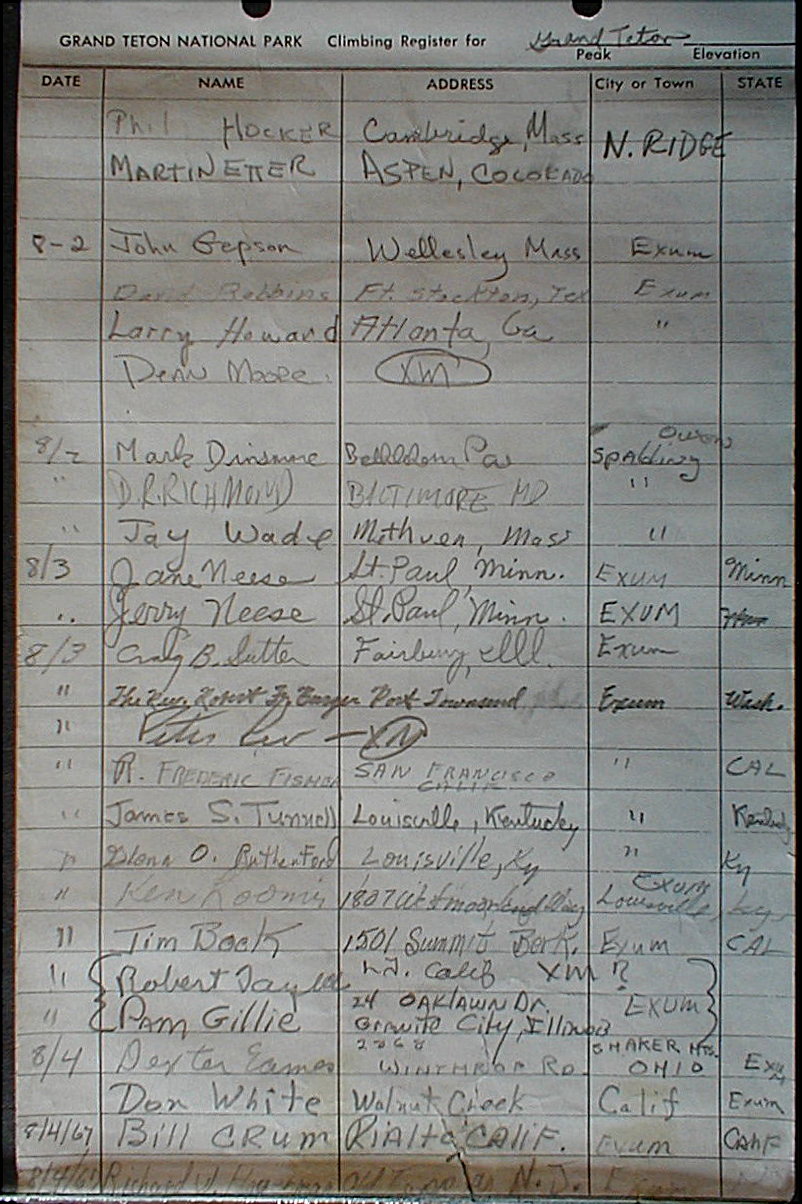 GRAND TETON NATIONAL PARK Climbing Register for Grand Teton
Peak Elevation
DATE NAME ADDRESS City or Town STATE
Phil HOCKER Cambridge, Mass N. RIDGE
MARTIN ETTER ASPEN, COLORADO
8-2 John Gepson Wellesley Mass Exum
David Robbins Ft. Stockton, Tex Exum
Larry Howard Atlanta, Ga "
Dean Moore XM
Owen
8/2 Mark Dinsmore Spalding
" D.R. RICHMOND BALTIMORE MD "
" Jay Wade Methuen, Mass "
8/3 Jane Neese St. Paul, Minn. EXUM Minn
" Jerry Neese St. Paul, Minn. EXUM
8/3 Craig B. Sutter Fairbury, Ill. Exum
" The Rev. Robert Burger Port Townsend Exum Wash.
" Peter Lev - XM
" R. FREDERIC FISHER SAN FRANCISCO " CAL
CALIF
" James S. Tunnell Louisville, Kentucky " Kentucky
" Glenn O. Rutherford Louisville, Ky " Ky
Exum
" Ken Loomis 1807 Westmoorland Way Louisville, Ky.
" Jim Bock 1501 Summit Berk. Exum CAL
" Robert Taylor L.A. Calif XM R
" Pam Gillie 24 OAKLAWN Dr. EXUM
Granite City, Illinois
8/4 Dexter Eames 2868 WINTHROP RD. SHAKER HTS. OHIO Exum
Don White Walnut Creek Calif Exum
8/4/67 Bill CRUM RIALTO CALIF. Exum Calif
8/4/67 Richard W. N.J.